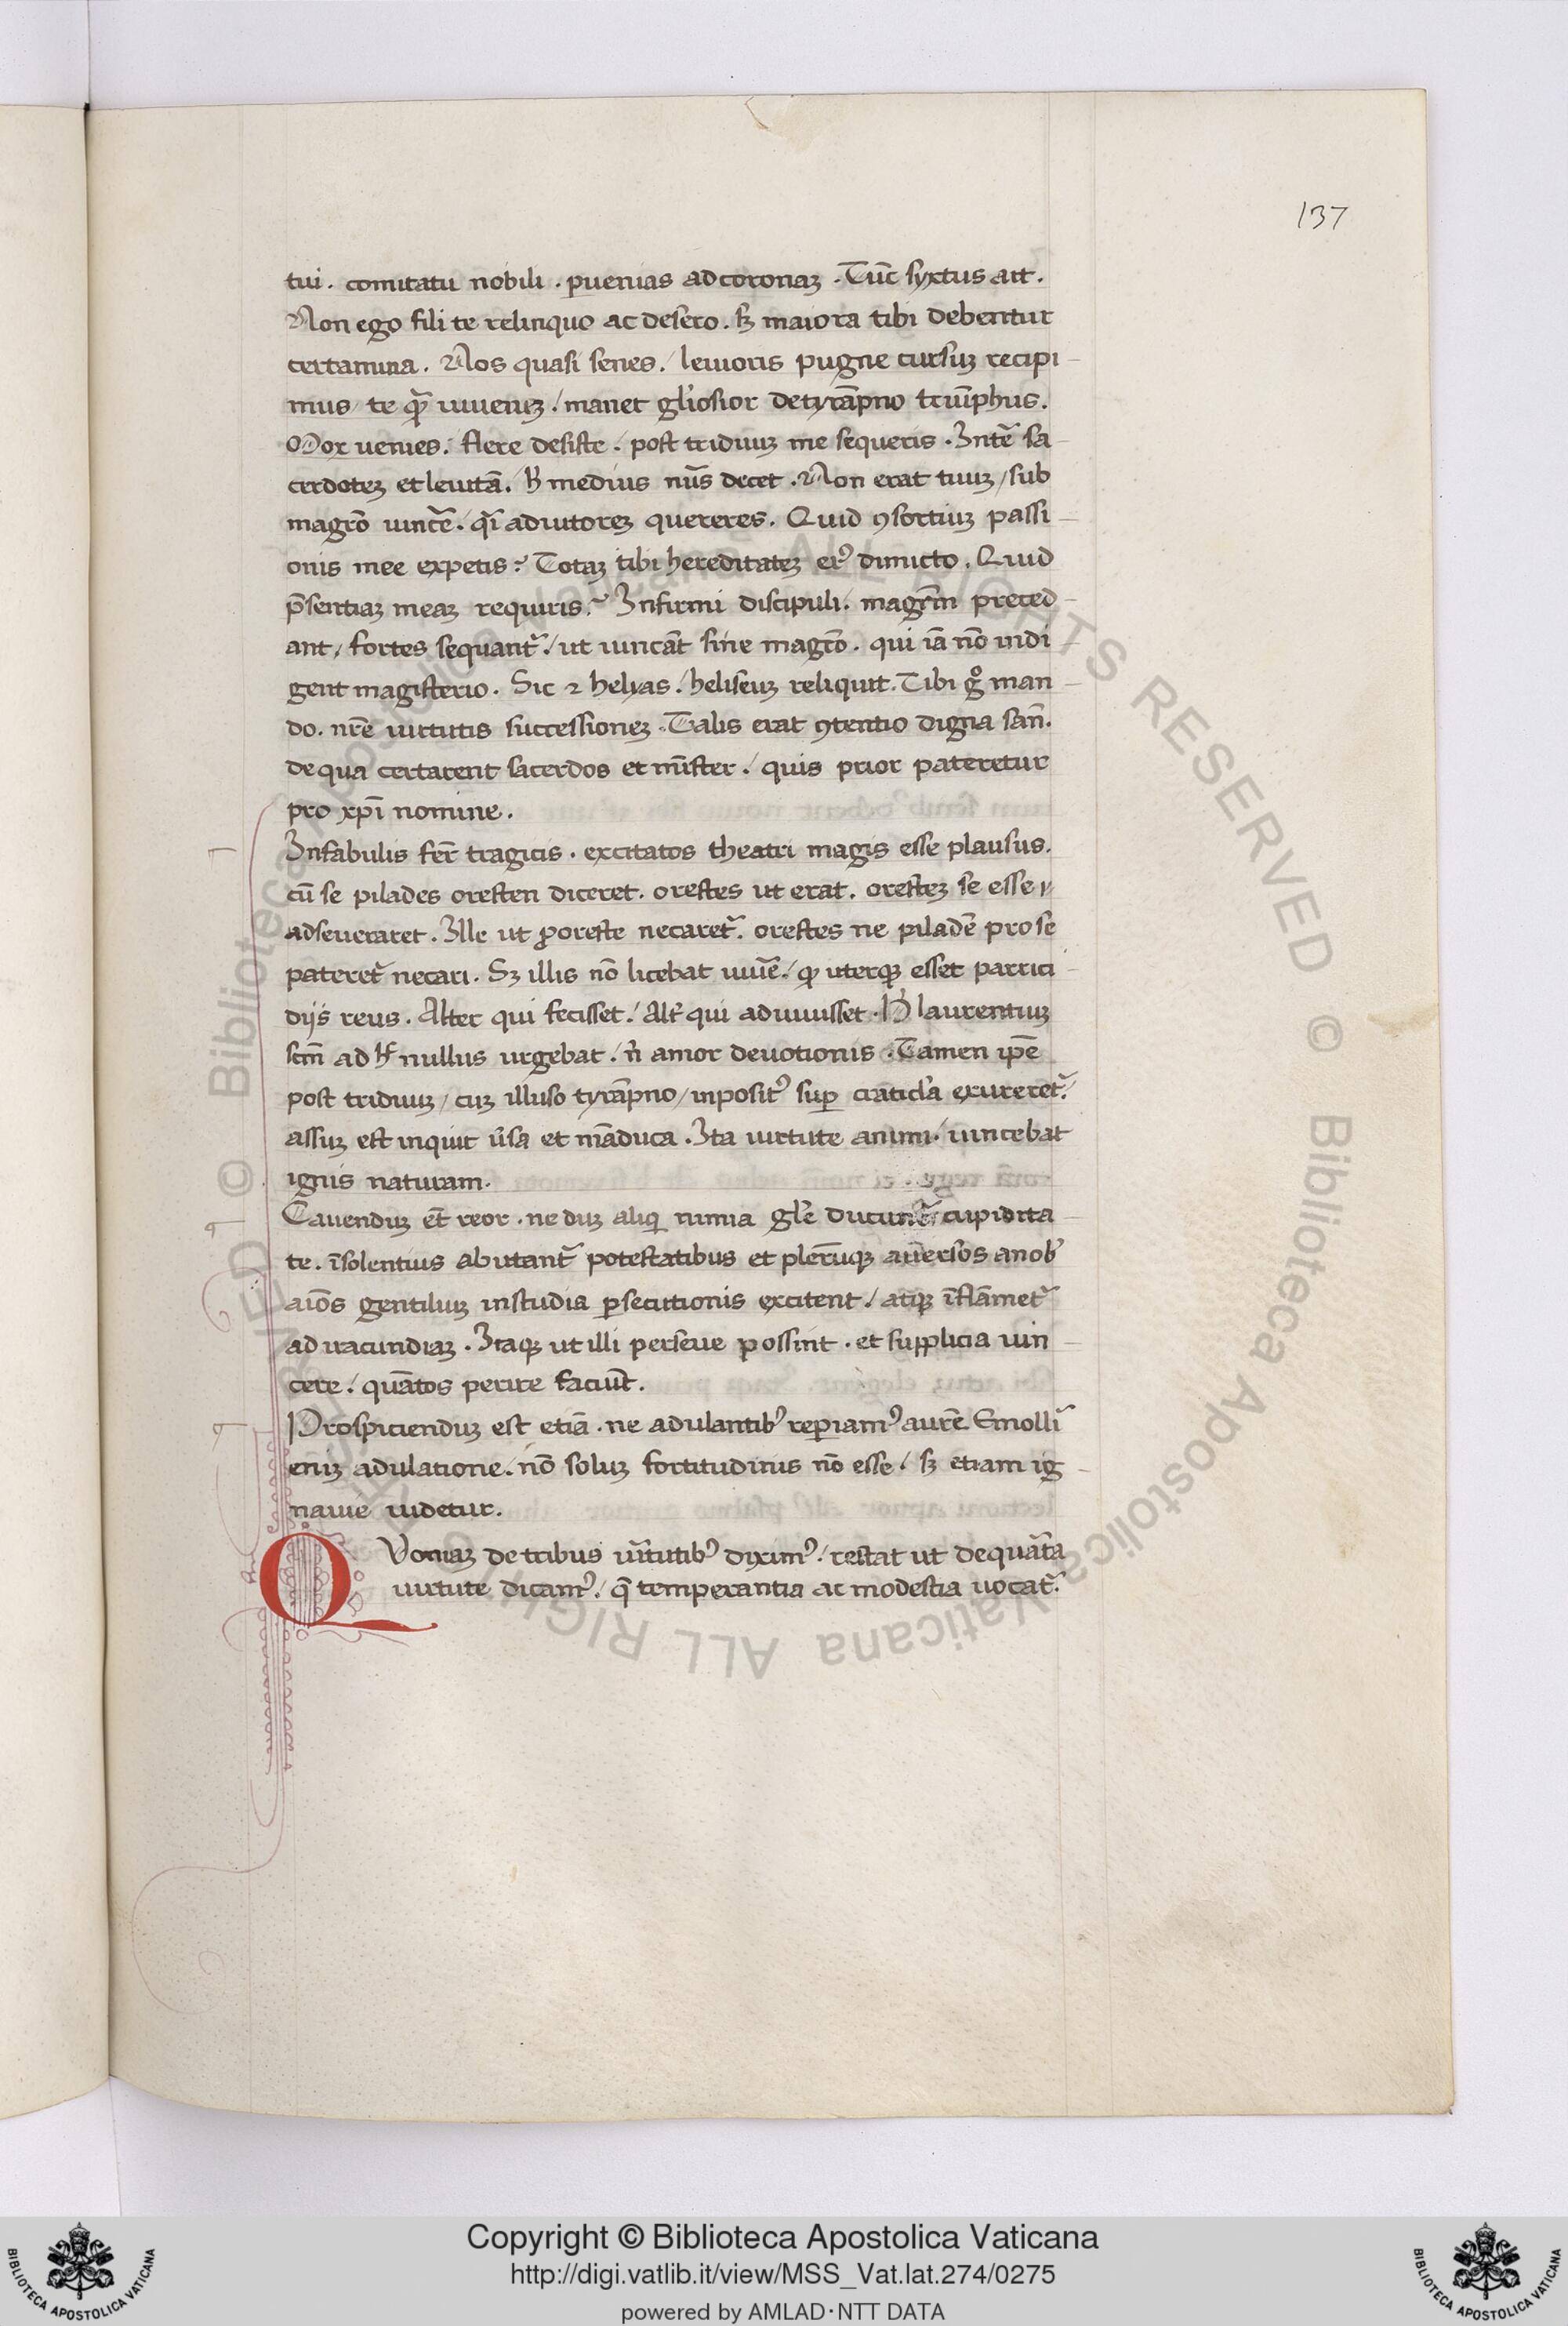 137
tui. comitatu nobili. ꝑuenias ad coronaꝫ. Tūc syxtus ait.
Non ego fili te relinquo ac desero. sꝫ maiora tibi debentur
certamina. Nos quasi senes / leuioris pugne cursuꝫ recipi-
mus / te qͣꝫ iuueneꝫ / manet gl'iosior de tyrāpno triūphus.
Mox uenies. flere desiste. post triduuꝫ me sequeris. Int̄ sa-
cerdoteꝫ et leuitā. h̓ medius nūs decet. Non erat tuuꝫ / sub
magr̄o uincē. qͣi adiutoreꝫ quereres. Quid ꝯsortiuꝫ passi-
onis mee expetis? Totaꝫ tibi hereditateꝫ eiꝰ dimicto. Quid
p̄sentiaꝫ meaꝫ requiris? Infirmi discipuli. magr̄m preced-
ant / fortes sequant᷑ / ut uincāt sine magr̄o. qui iā nō indi-
gent magisterio. Sic ⁊ helyas / heliseuꝫ reliquit. Tibi gͦ man-
do. nr̄e uirtutis successioneꝫ. Talis erat ꝯtentio digna san̄.
de qua certarent sacerdos et mīster / quis prior pateretur
pro xp̄i nomine.
In fabulis fer̄ tragicis. excitatos theatri magis esse plausus.
cū se pilades oresten diceret. orestes ut erat. oresteꝫ se esse
adseueraret. Ille ut ꝓ oreste necaret᷑. orestes ne piladē pro se
pateret᷑ necari. Sꝫ illis nō licebat uiuē / ꝙ uterqꝫ esset parrici-
dijs reus. Alter qui fecisset / Alt̄ qui adiuuisset. H̓ laurentiuꝫ
scm̄ ad h̓ nullus urgebat. n̄ amor deuotionis. Tamen ip̄e
post triduuꝫ / cuꝫ illuso tyrāpno / inpositꝰ suꝑ craticl'a exureret᷑ /
assuꝫ est inquit ūsa et māduca. Ita uirtute animi. uincebat
ignis naturam.
Cauenduꝫ et̄ reor. ne duꝫ aliqͥ nimia gl'e ducunt᷑ cupidita-
te. īsolentius abutant᷑ potestatibus et plerūqꝫ auersos a nobꝰ
aīos gentiliuꝫ in studia ꝑsecutionis excitent / atqꝫ īflāmet᷑
ad iracundiaꝫ. Itaqꝫ ut illi perseue possint. et supplicia uin-
cere / quātos perire faciūt.
Prospiciendum est etiā. ne adulantibꝰ reꝑiamꝰ aurē. Emolli᷑
eniꝫ adulatione. nō soluꝫ fortitudinis nō esse / sꝫ etiam ig-
nauie uidetur.
QVoniaꝫ de tribus uīrtutibꝰ diximꝰ / restat ut de quarta
uirtute dicamꝰ / q̄ temperantia ac modestia uocat᷑.
Copyright © Biblioteca Apostolica Vaticana
http://digi.vatlib.it/view/MSS_Vat.lat.274/0275
powered by AMLAD·NTT DATA
BIBLIOTECA APOSTOLICA VATICANA
BIBLIOTECA APOSTOLICA VATICANA
© Biblioteca Apostolica Vaticana ALL RIGHTS RESERVED © Biblioteca Apostolica Vaticana ALL RIGHTS RESERVED